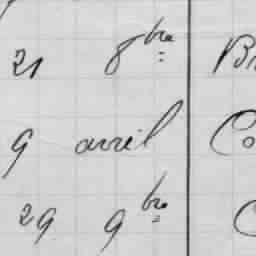 21 8bre Br
9 avril Co
29 9bre C